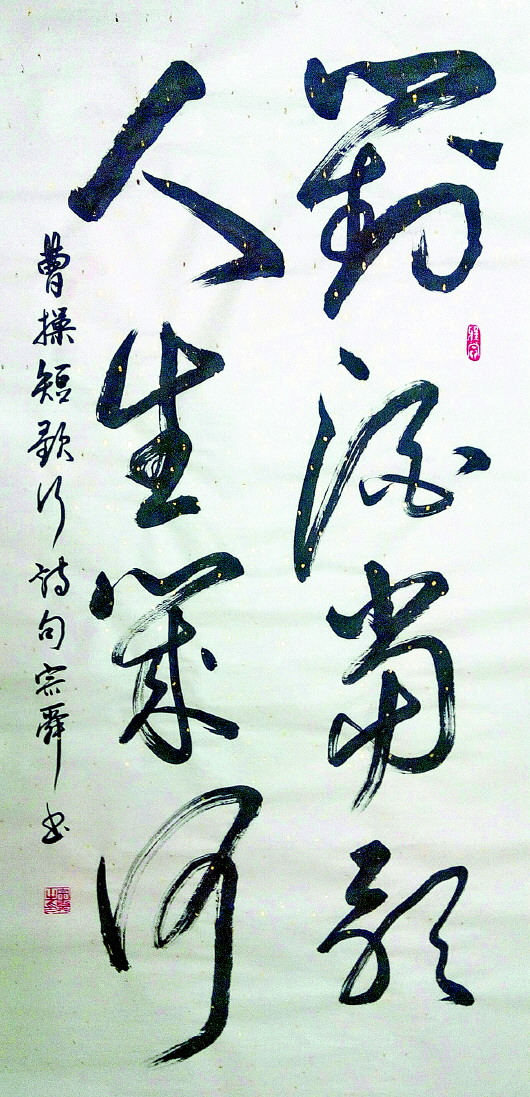 對酒當歌
人生幾何
曹操短歌行詩句宗舜书